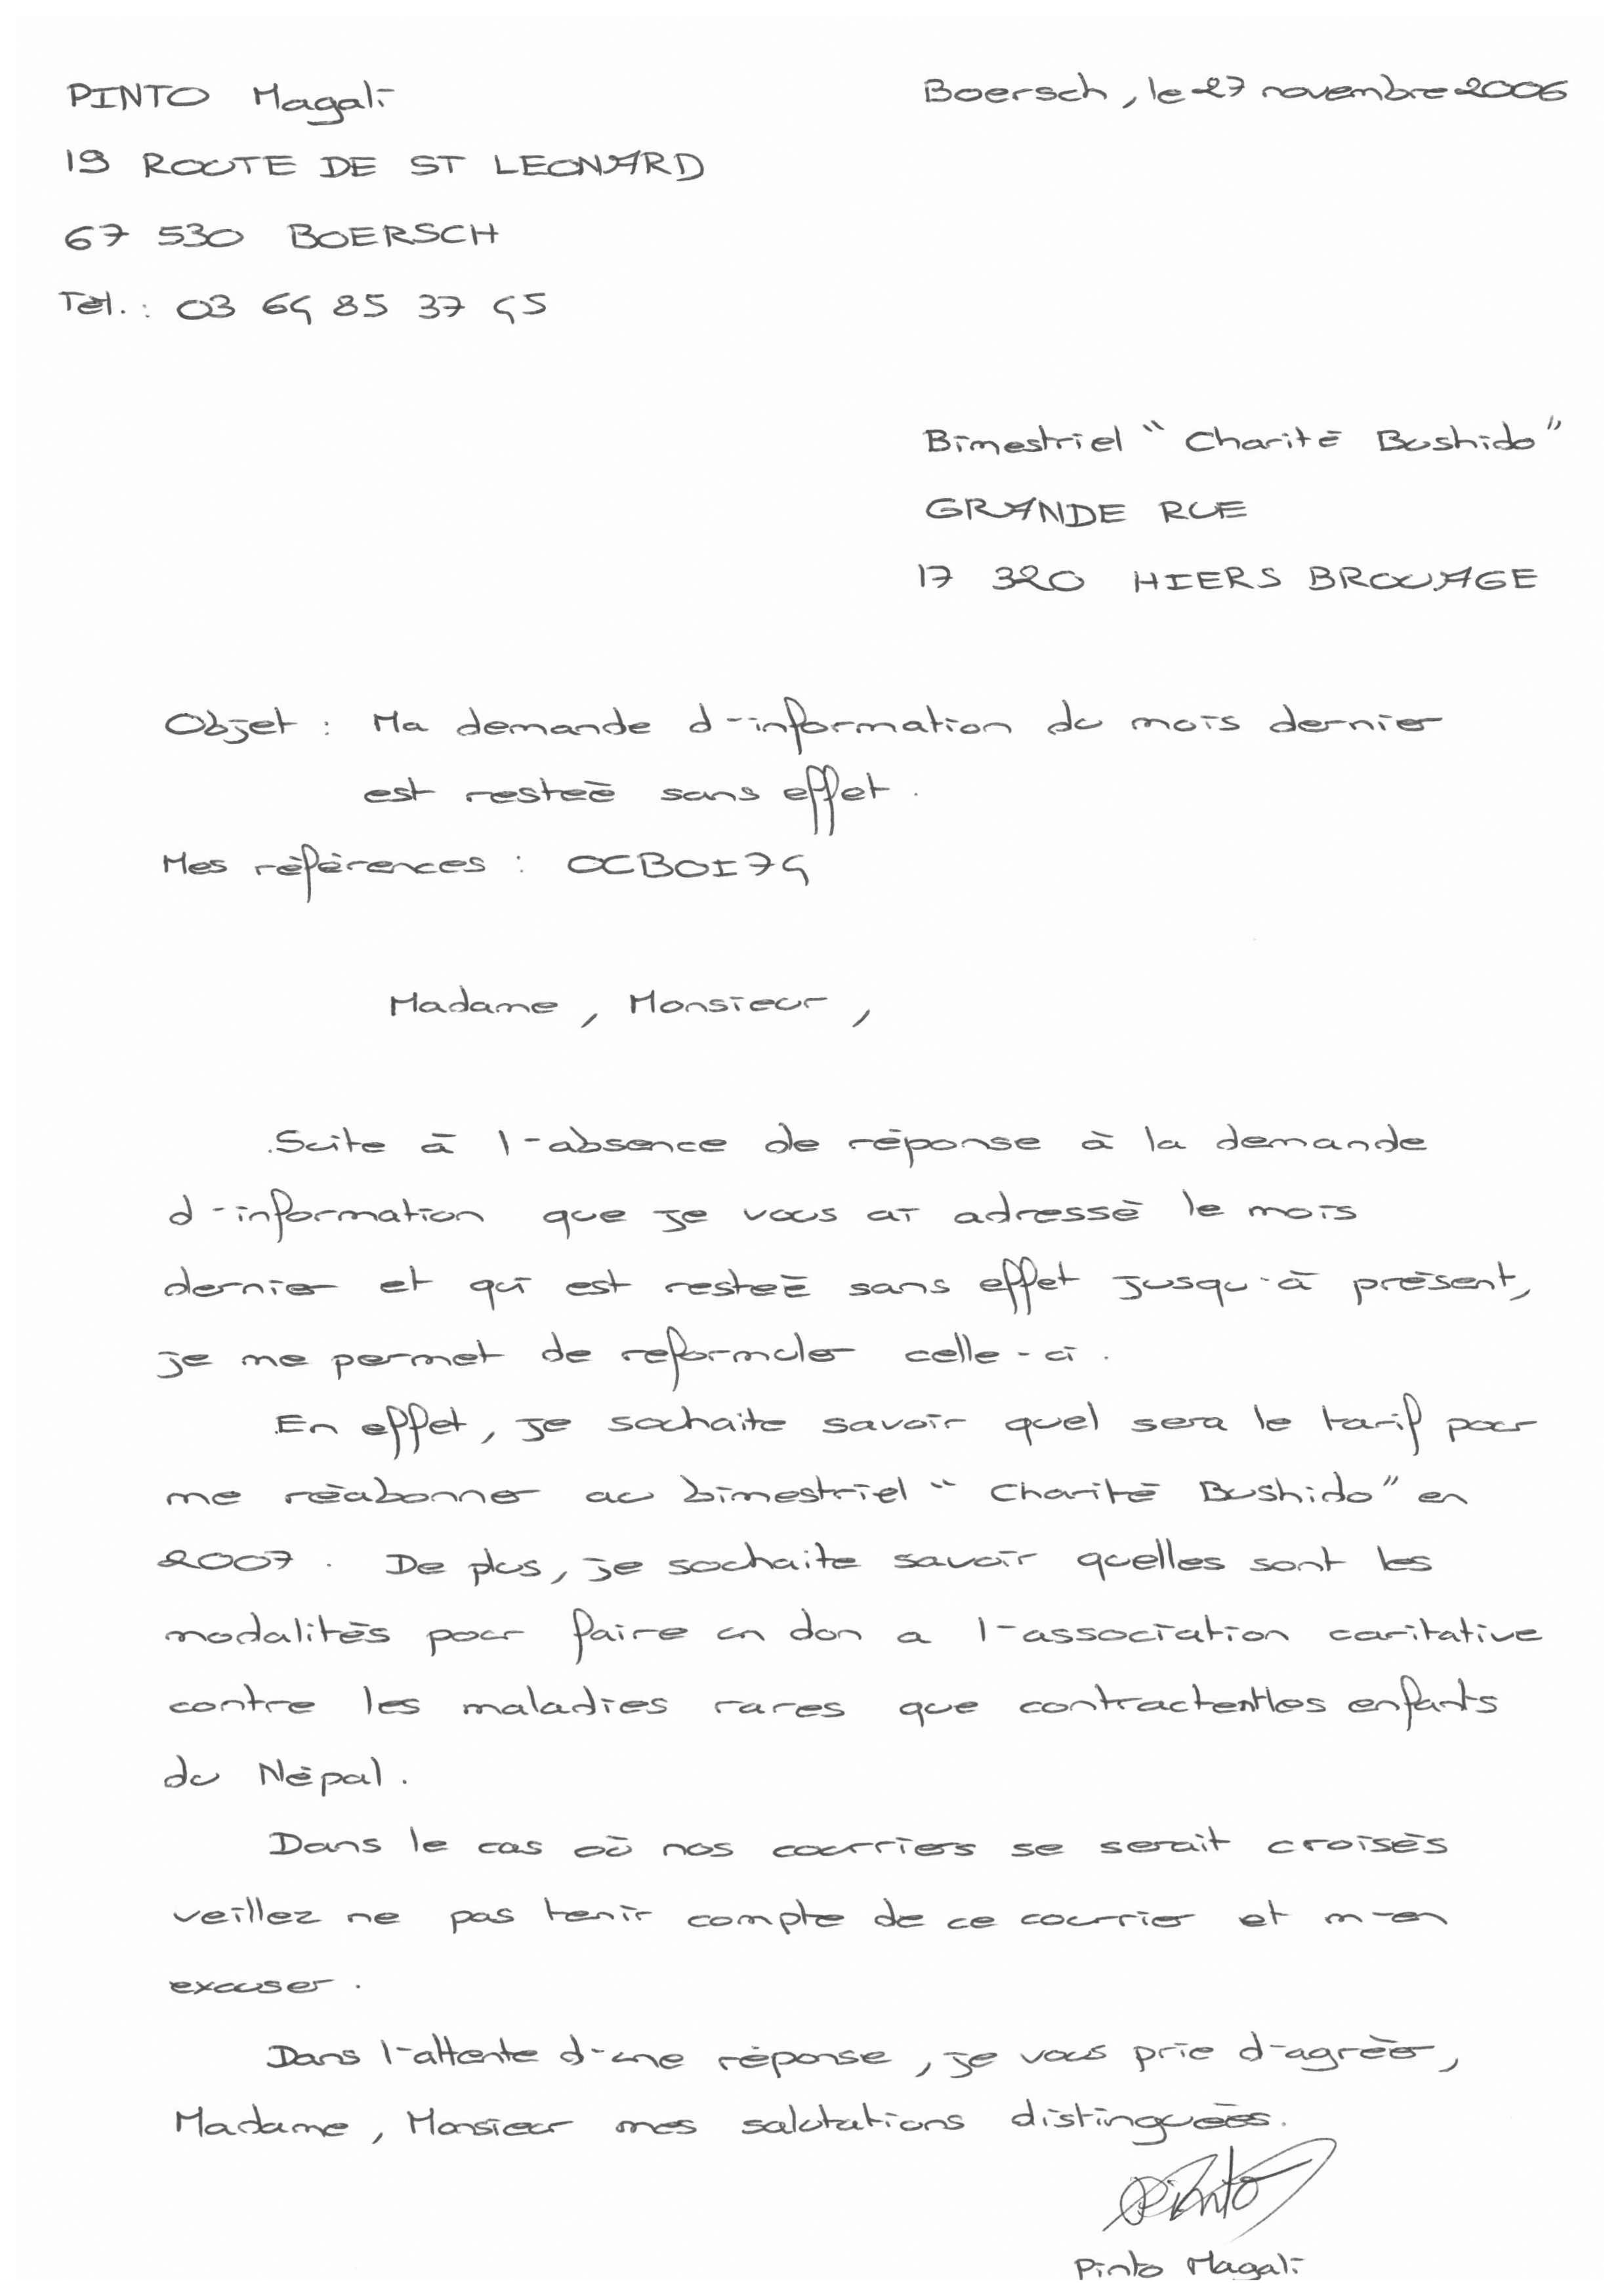 PINTO Magali
Boersch, le 27 novembre 2006
19 ROUTE DE ST LEONARD
67 530 BOERSCH
Tèl. : 03 64 85 37 45
Bimestriel " Charité Bushido"
GRANDE RUE
17 320 HIERS BROUAGE
Objet : Ma demande d'information du mois dernier
est restée sans effet.
Mes références : OCBOI74
Madame, Monsieur,
Suite à l'absence de réponse à la demande
d'information que je vous ai adressé le mois
dernier et qui est restée sans effet jusqu'à présent,
je me permet de reformuler celle-ci.
En effet, je souhaite savoir quel sera le tarif pour
me réabonner au bimestriel " Charité Bushido" en
2007. De plus, je souhaite savoir quelles sont les
modalités pour faire un don a l'association caritative
contre les maladies rares que contractent les enfants
du Népal.
Dans le cas où nos courriers se serait croisés
veillez ne pas tenir compte de ce courrier et m'en
excuser.
Dans l'attente d'une réponse, je vous prie d'agréer,
Madame, Monsieur mes salutations distinguées.
Pinto
Pinto Magali